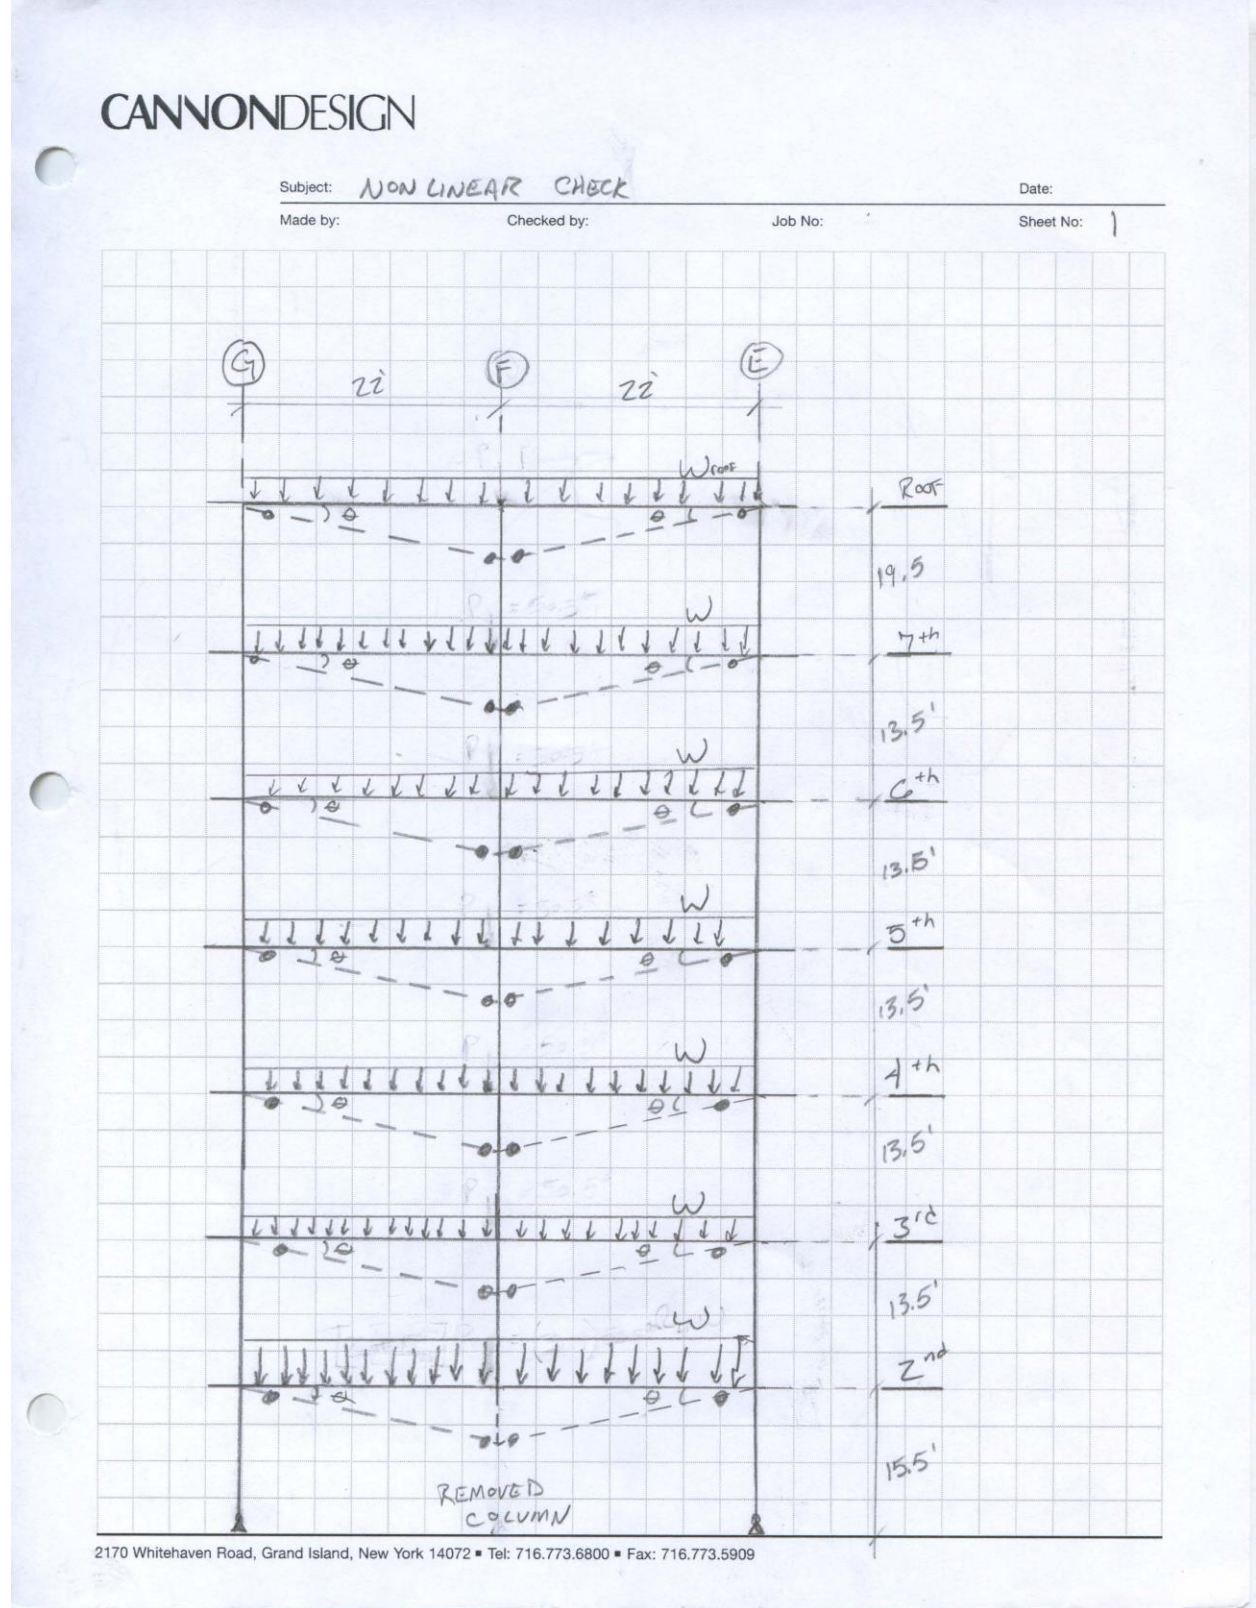 CANNONDESIGN
Subject: NON LINEAR CHECK
Date:
Made by:
Checked by:
Job No:
Sheet No: 1
G
F
E
22'
22'
W roof
ROOF
θ θ
19.5
W
7th
θ θ
13.5'
W
6th
θ θ
13.5'
W
5th
θ θ
13.5'
W
4th
θ θ
13.5'
W
3rd
θ θ
13.5'
W
2nd
θ θ
15.5'
REMOVED
COLUMN
2170 Whitehaven Road, Grand Island, New York 14072 ▪ Tel: 716.773.6800 ▪ Fax: 716.773.5909